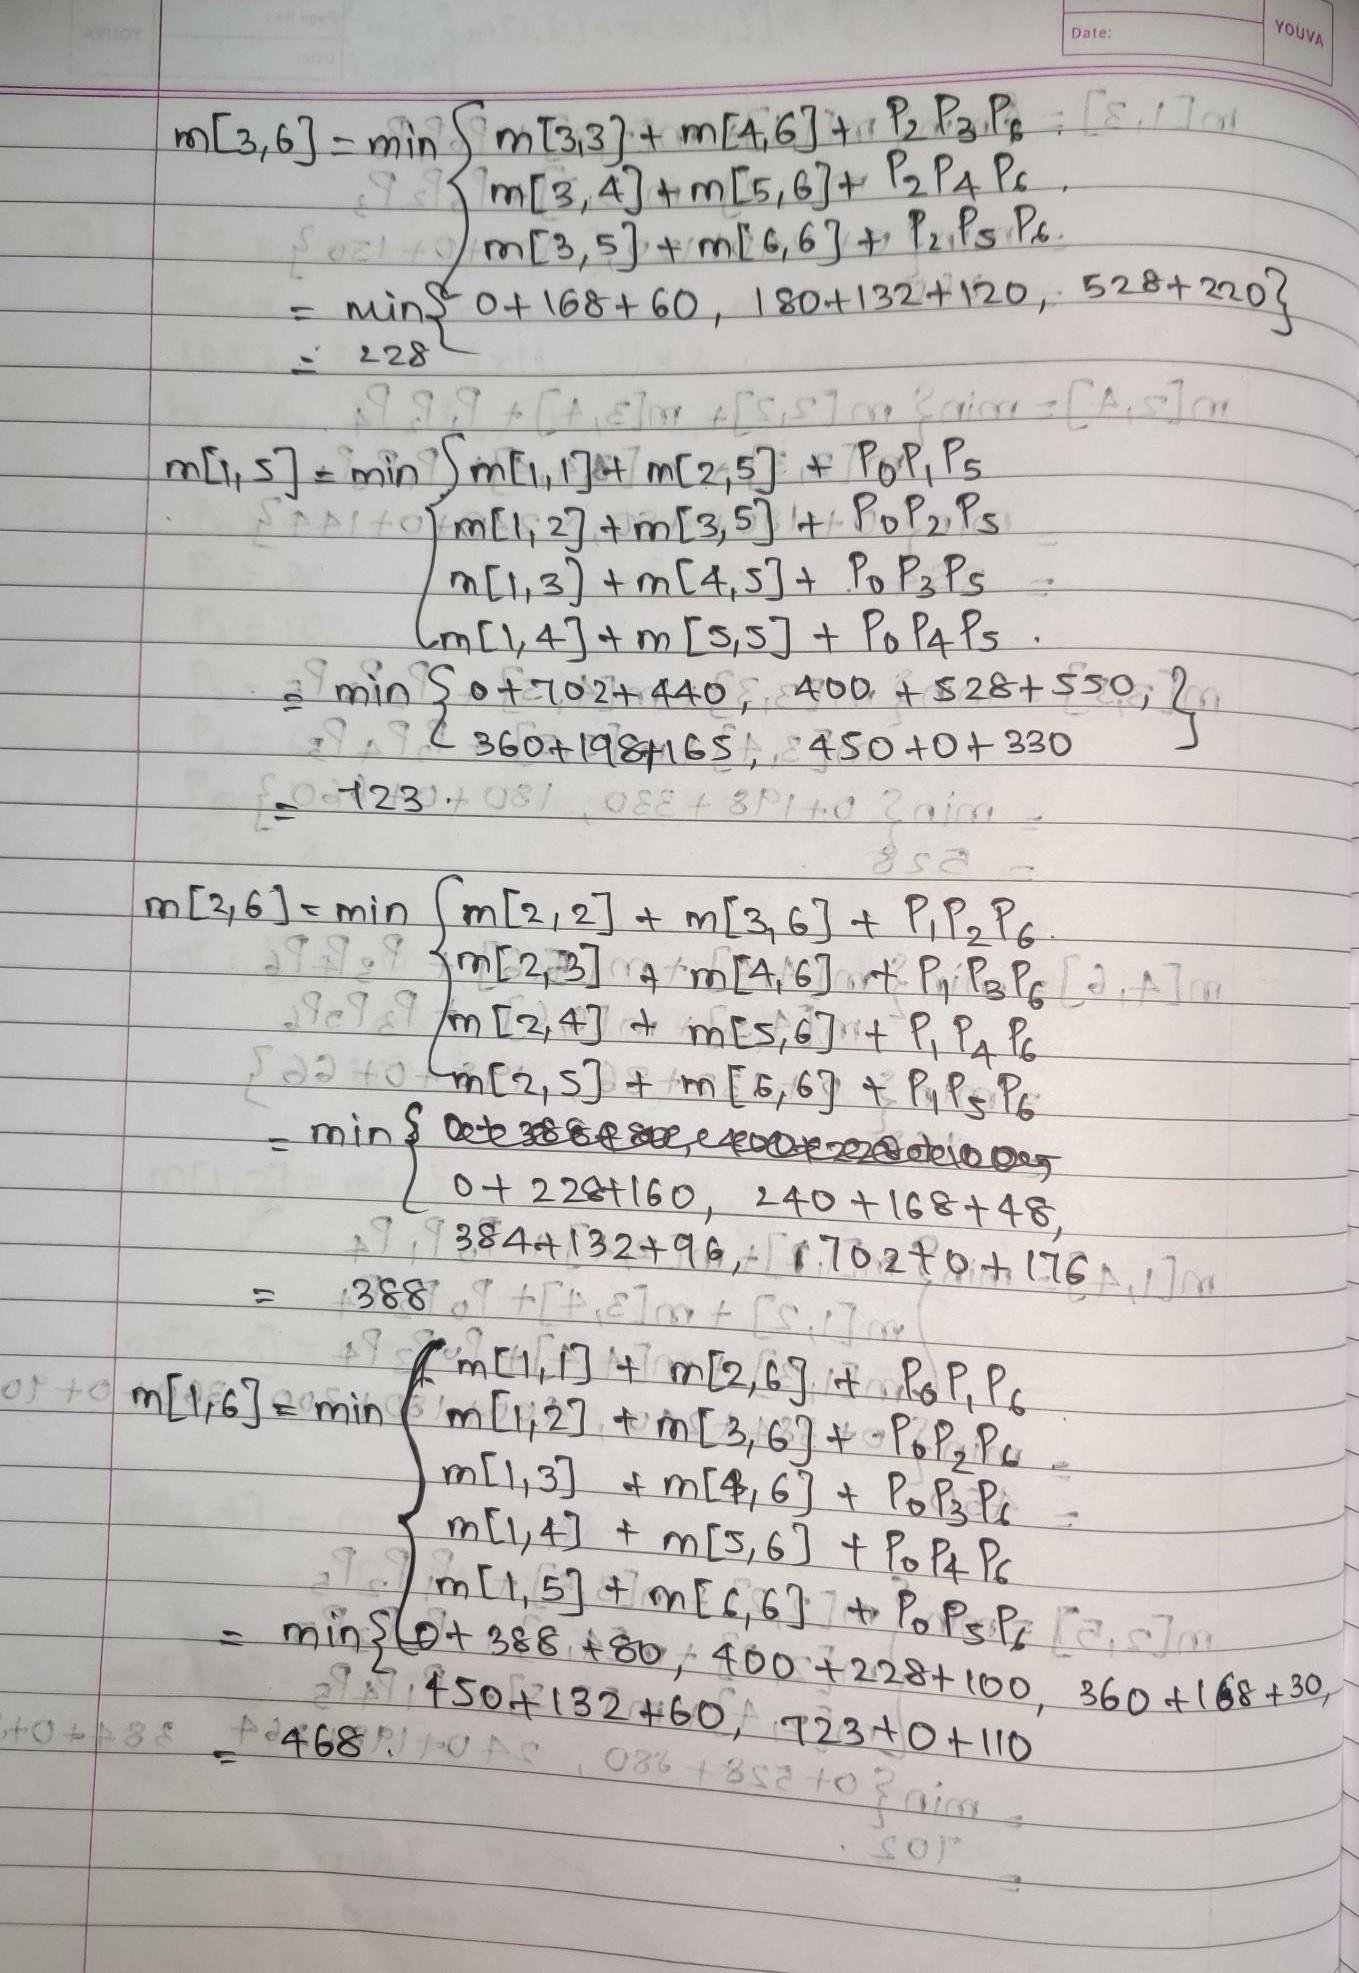 Date:
YOUVA
m[3,6] = min { m[3,3] + m[4,6] + P2 P3 P6
m[3,4] + m[5,6] + P2 P4 P6
m[3,5] + m[6,6] + P2 P5 P6
= min { 0 + 168 + 60, 180 + 132 + 120, 528 + 220 }
= 228
m[1,5] = min { m[1,1] + m[2,5] + P0 P1 P5
m[1,2] + m[3,5] + P0 P2 P5
m[1,3] + m[4,5] + P0 P3 P5
m[1,4] + m[5,5] + P0 P4 P5
= min { 0 + 702 + 440, 400 + 528 + 550, }
360 + 198 + 165, 450 + 0 + 330
= 723
m[2,6] = min { m[2,2] + m[3,6] + P1 P2 P6
m[2,3] + m[4,6] + P1 P3 P6
m[2,4] + m[5,6] + P1 P4 P6
m[2,5] + m[6,6] + P1 P5 P6
= min {
0 + 228 + 160, 240 + 168 + 48,
384 + 132 + 96, 702 + 0 + 176
= 388
m[1,6] = min { m[1,1] + m[2,6] + P0 P1 P6
m[1,2] + m[3,6] + P0 P2 P6
m[1,3] + m[4,6] + P0 P3 P6
m[1,4] + m[5,6] + P0 P4 P6
m[1,5] + m[6,6] + P0 P5 P6
= min { 0 + 388 + 80, 400 + 228 + 100, 360 + 168 + 30,
450 + 132 + 60, 723 + 0 + 110
= 468.